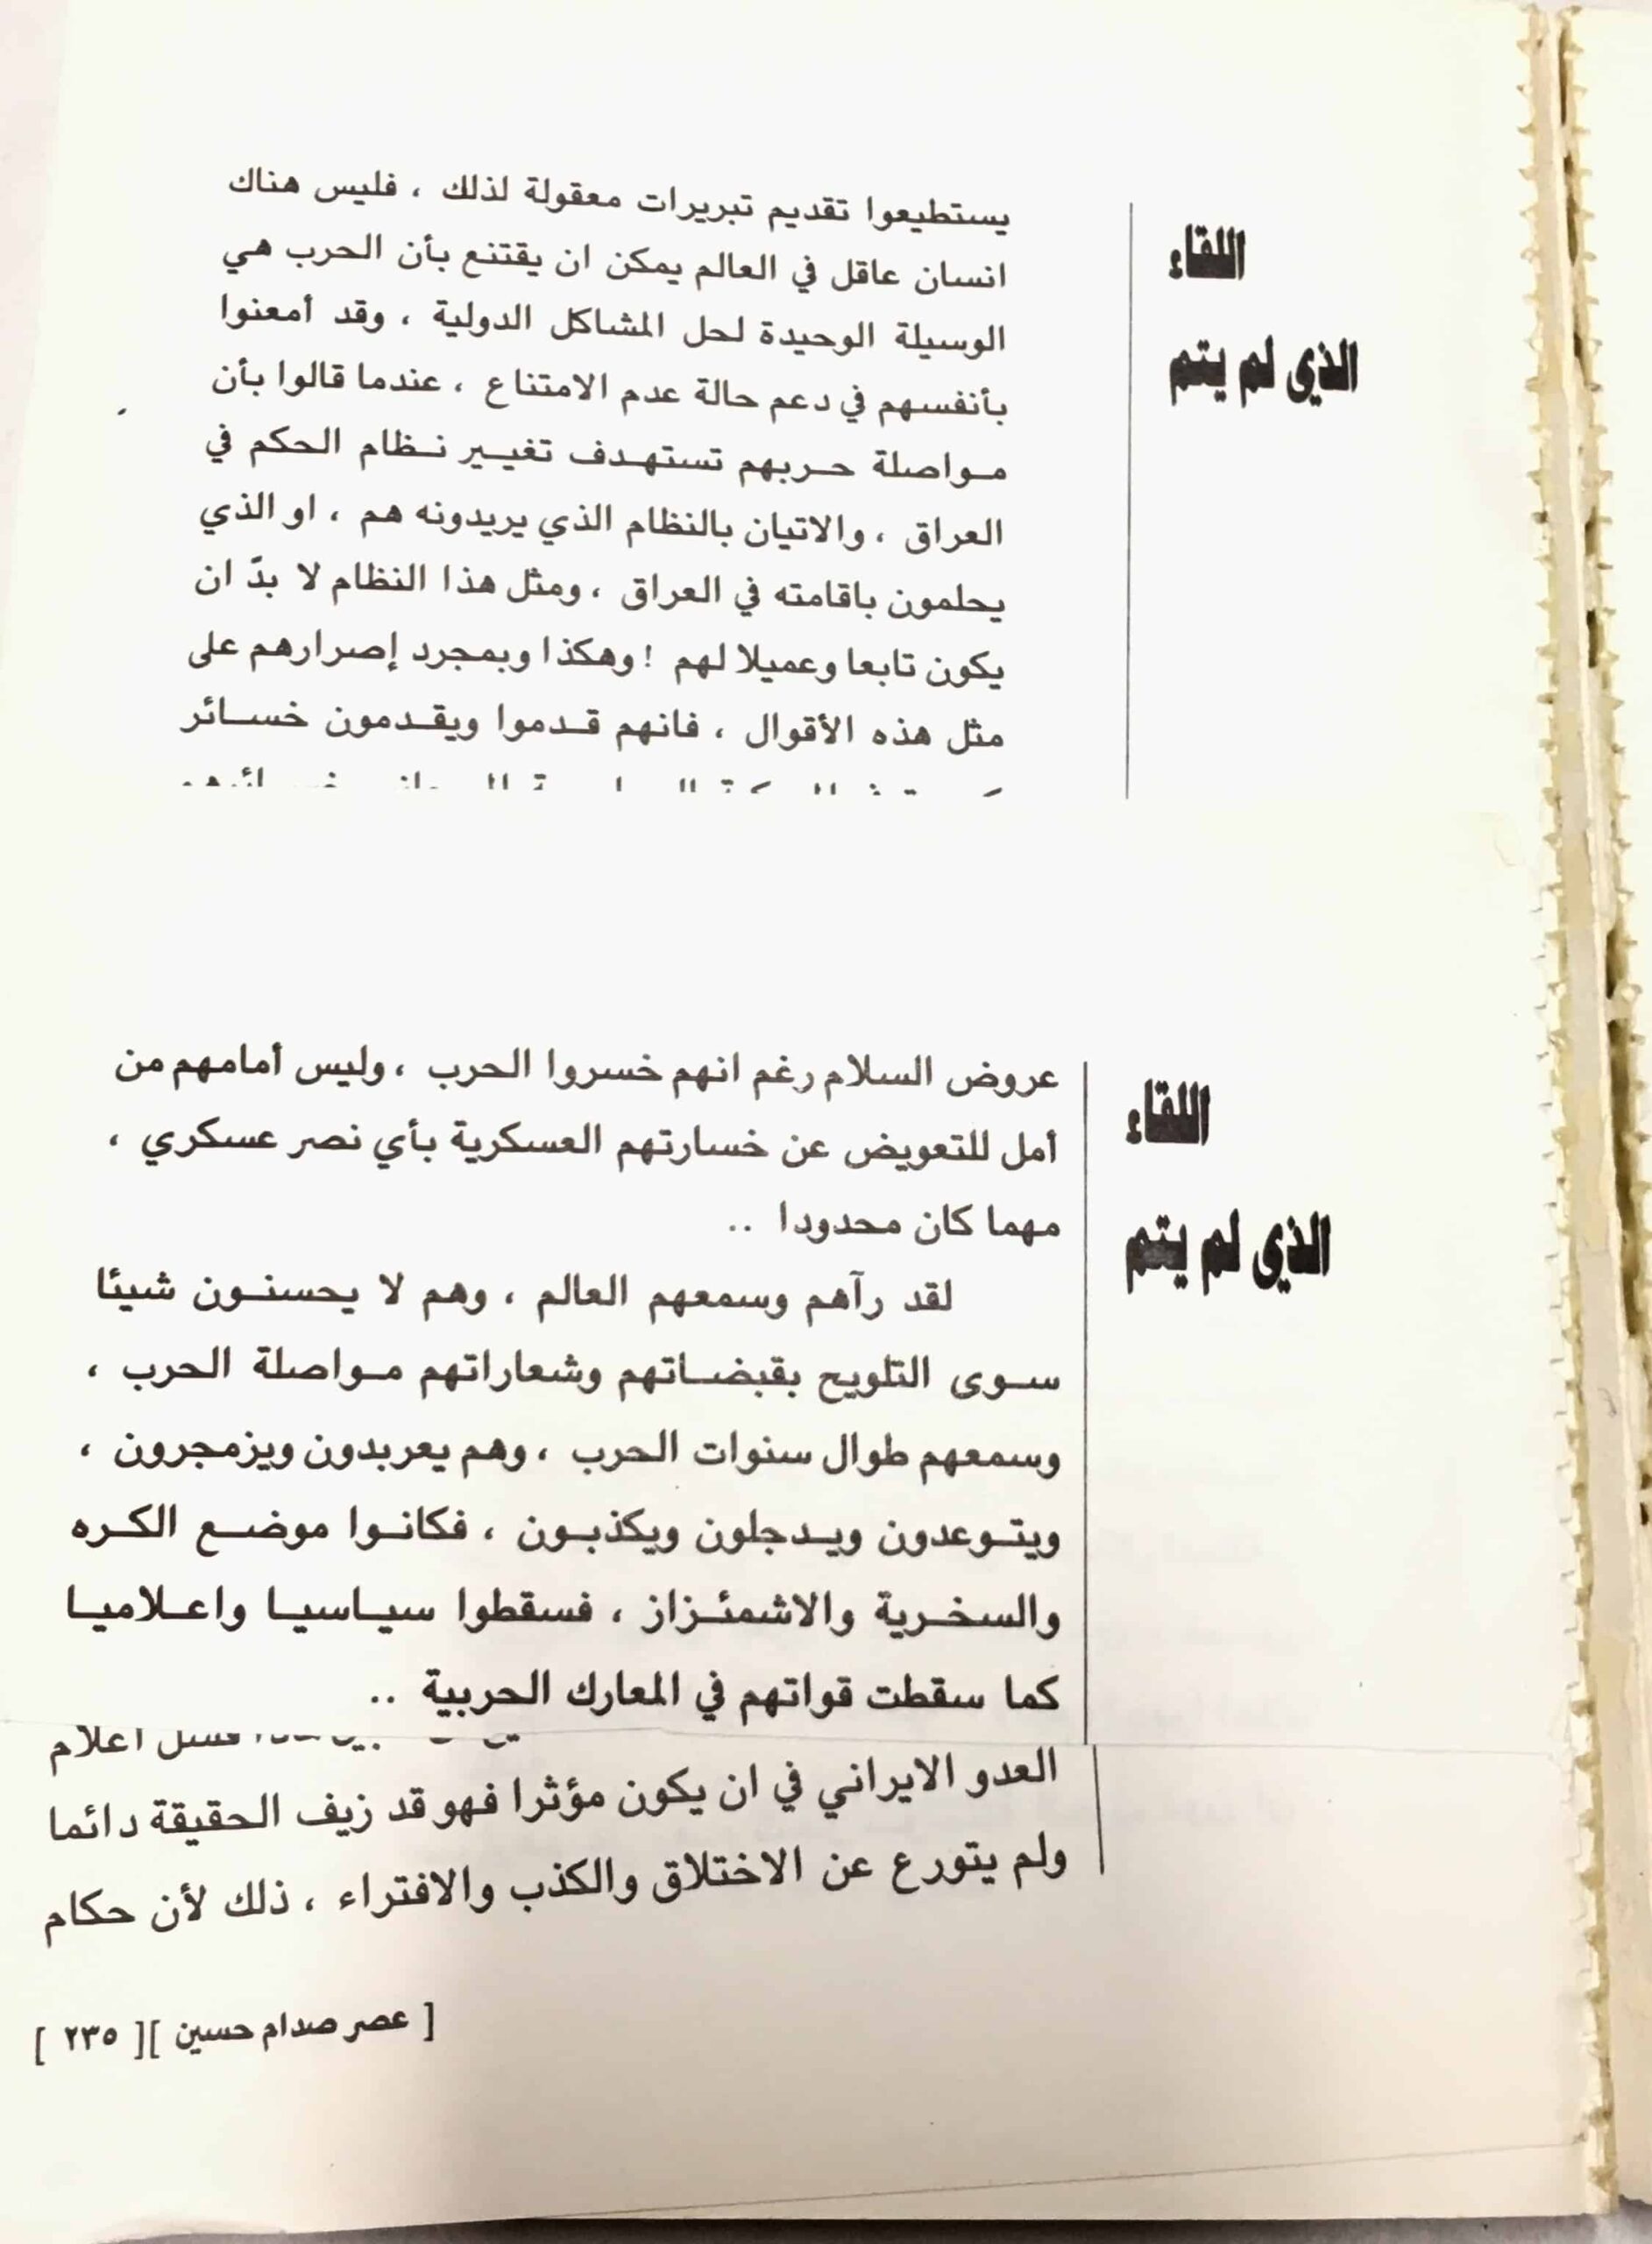 اللقاء
الذي لم يتم
يستطيعوا تقديم تبريرات معقولة لذلك ، فليس هناك
انسان عاقل في العالم يمكن ان يقتنع بأن الحرب هي
الوسيلة الوحيدة لحل المشاكل الدولية ، وقد أمعنوا
بأنفسهم في دعم حالة عدم الامتناع ، عندما قالوا بأن
مواصلة حربهم تستهدف تغيير نظام الحكم في
العراق ، والاتيان بالنظام الذي يريدونه هم ، او الذي
يحلمون باقامته في العراق ، ومثل هذا النظام لا بدّ ان
يكون تابعا وعميلا لهم ! وهكذا وبمجرد إصرارهم على
مثل هذه الأقوال ، فانهم قدموا ويقدمون خسائر
اللقاء
الذي لم يتم
عروض السلام رغم انهم خسروا الحرب ، وليس أمامهم من
أمل للتعويض عن خسارتهم العسكرية بأي نصر عسكري ،
مهما كان محدودا ..
لقد رآهم وسمعهم العالم ، وهم لا يحسنون شيئا
سوى التلويح بقبضاتهم وشعاراتهم مواصلة الحرب ،
وسمعهم طوال سنوات الحرب ، وهم يعربدون ويزمجرون ،
ويتوعدون ويدجلون ويكذبون ، فكانوا موضع الكره
والسخرية والاشمئزاز ، فسقطوا سياسيا واعلاميا
كما سقطت قواتهم في المعارك الحربية ..
اعلام
العدو الايراني في ان يكون مؤثرا فهو قد زيف الحقيقة دائما
ولم يتورع عن الاختلاق والكذب والافتراء ، ذلك لأن حكام
[ عصر صدام حسين ][ ٢٣٥ ]